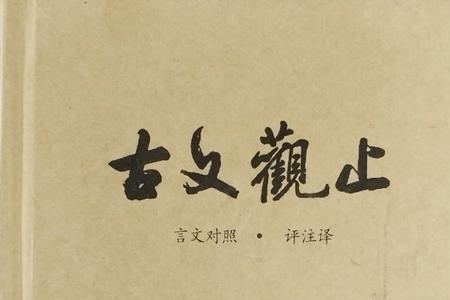 古文觀止
言文对照 • 评注译